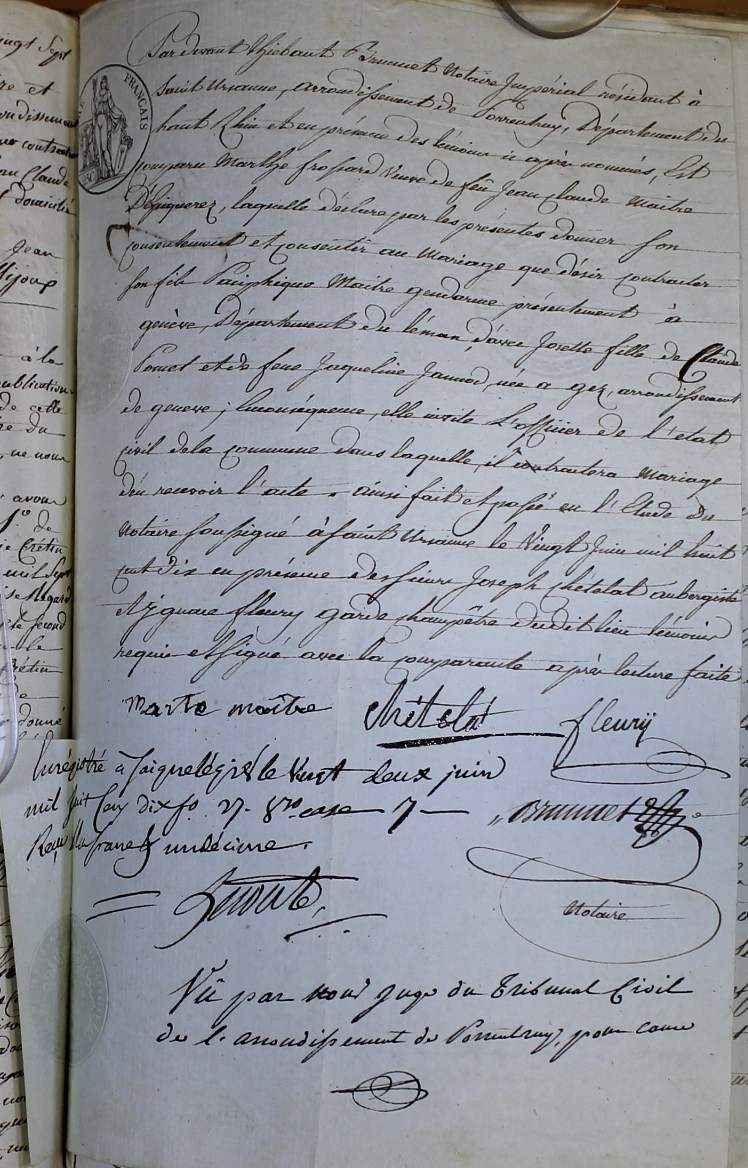 Par devant Thiebaut Brunnet Notaire Impérial résidant à
Saint Ursanne, arrondissement de Porrentruy, Département du
haut Rhin et en présence des témoins ci après nommés, Est
comparu Marthe frossard Veuve de feu Jean Claude Maitre
D'Epiquerez, laquelle déclare par les présentes donner son
consentement et consentir au Mariage que désir contracter
son fils Maitre gendarme présentement à
genève, Département du léman, d'avec Josette fille de Claude
Pomet et de feue Jaqueline Jannod, née a gex, arrondissement
de geneve; elle invite L'officier de l'etat
civil de la commune dans laquelle il contractera mariage
d'en recevoir l'acte. ainsi fait et passé en l'Etude du
Notaire soussigné à saint Ursanne le Vingt Juin mil huit
cent dix en présence des sieurs Joseph Chetelat aubergiste
et Ignace fleury garde champêtre dudit lieu témoins
requis et signé avec la comparante après lecture faite
FRANÇAIS
marte maître Chételat fleurÿ
Enregistré à Saignelégier le vingt deux juin
mil huit Cent dix fo. 27. Vo. case 7
Reçu Un franc & un décime.
Brunnet
Notaire
Vû par nous Juge du Tribunal Civil
de l'arrondissement de Porrentruy, pour
ingt Sept
re et
ondissement
an Claude
domicilié
Jean
à la
publication
de cette
re du
avons
de
Crétin
mil Sept
second
donné